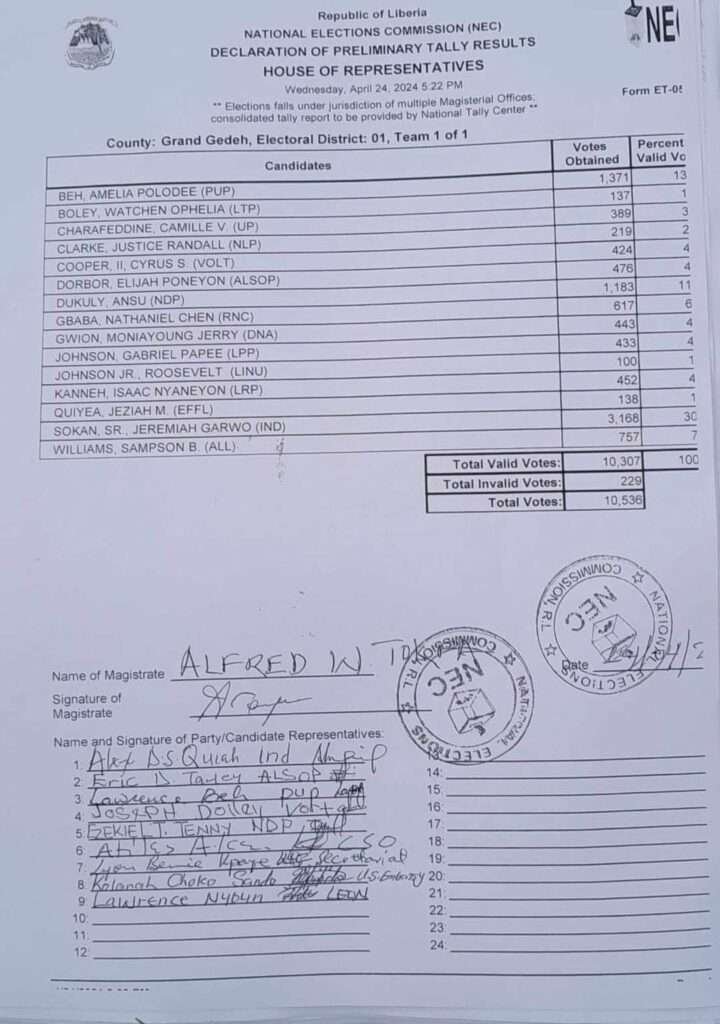 Republic of Liberia
NATIONAL ELECTIONS COMMISSION (NEC)
DECLARATION OF PRELIMINARY TALLY RESULTS
HOUSE OF REPRESENTATIVES
Wednesday, April 24, 2024 5:22 PM
** Elections falls under jurisdiction of multiple Magisterial Offices;
consolidated tally report to be provided by National Tally Center **
NEC
Form ET-0
County: Grand Gedeh, Electoral District: 01, Team 1 of 1
Candidates Votes Obtained Percent Valid Vo
BEH, AMELIA POLODEE (PUP) 1,371 13
BOLEY, WATCHEN OPHELIA (LTP) 137 1
CHARAFEDDINE, CAMILLE V. (UP) 389 3
CLARKE, JUSTICE RANDALL (NLP) 219 2
COOPER, II, CYRUS S. (VOLT) 424 4
DORBOR, ELIJAH PONEYON (ALSOP) 476 4
DUKULY, ANSU (NDP) 1,183 11
GBABA, NATHANIEL CHEN (RNC) 617 6
GWION, MONIAYOUNG JERRY (DNA) 443 4
JOHNSON, GABRIEL PAPEE (LPP) 433 4
JOHNSON JR., ROOSEVELT (LINU) 100 1
KANNEH, ISAAC NYANEYON (LRP) 452 4
QUIYEA, JEZIAH M. (EFFL) 138 1
SOKAN, SR., JEREMIAH GARWO (IND) 3,168 30
WILLIAMS, SAMPSON B. (ALL) 757 7
Total Valid Votes: 10,307 100
Total Invalid Votes: 229
Total Votes: 10,536
Name of Magistrate ALFRED W.
Signature of
Magistrate
Date
NATIONAL ELECTIONS COMMISSION, R.L
NEC
NATIONAL ELECTIONS COMMISSION, R.L
NEC
Name and Signature of Party/Candidate Representatives:
1: D.S Quiah Ind
2: Eric D Tayley ALSOP
3 Lawrence Beh PUP
4 JOSEPH DOLLEY
5 EZEKIEL T. TENNY NDP
6 CSO
7 Secretariat
8 Kolanah Choko Sando U.S. Embassy
9 Lawrence LEON
10:
11:
12:
14:
15:
16:
17:
18:
19:
20:
21:
22:
23:
24: